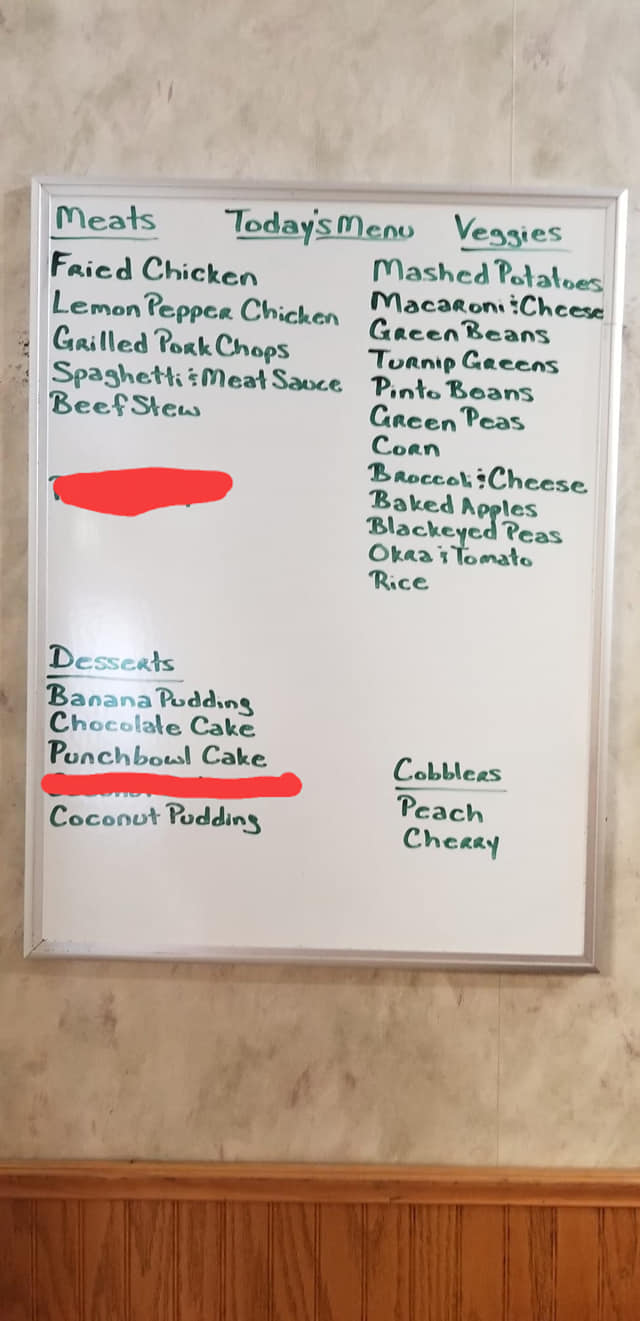 Meats
Today's Menu
Veggies
Fried Chicken
Lemon Pepper Chicken
Grilled Pork Chops
Spaghetti & Meat Sauce
Beef Stew
Mashed Potatoes
Macaroni & Cheese
Green Beans
Turnip Greens
Pinto Beans
Green Peas
Corn
Broccoli & Cheese
Baked Apples
Blackeyed Peas
Okra & Tomato
Rice
Desserts
Banana Pudding
Chocolate Cake
Punchbowl Cake
Coconut Pudding
Cobblers
Peach
Cherry